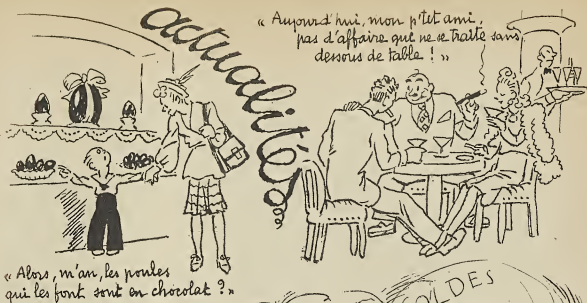 actualités
« Aujourd'hui, mon p'tit ami,
pas d'affaire qui ne se traite sans
dessous de table ! »
« Alors, m'an, les poules
qui les font sont en chocolat ? »
SOLDES